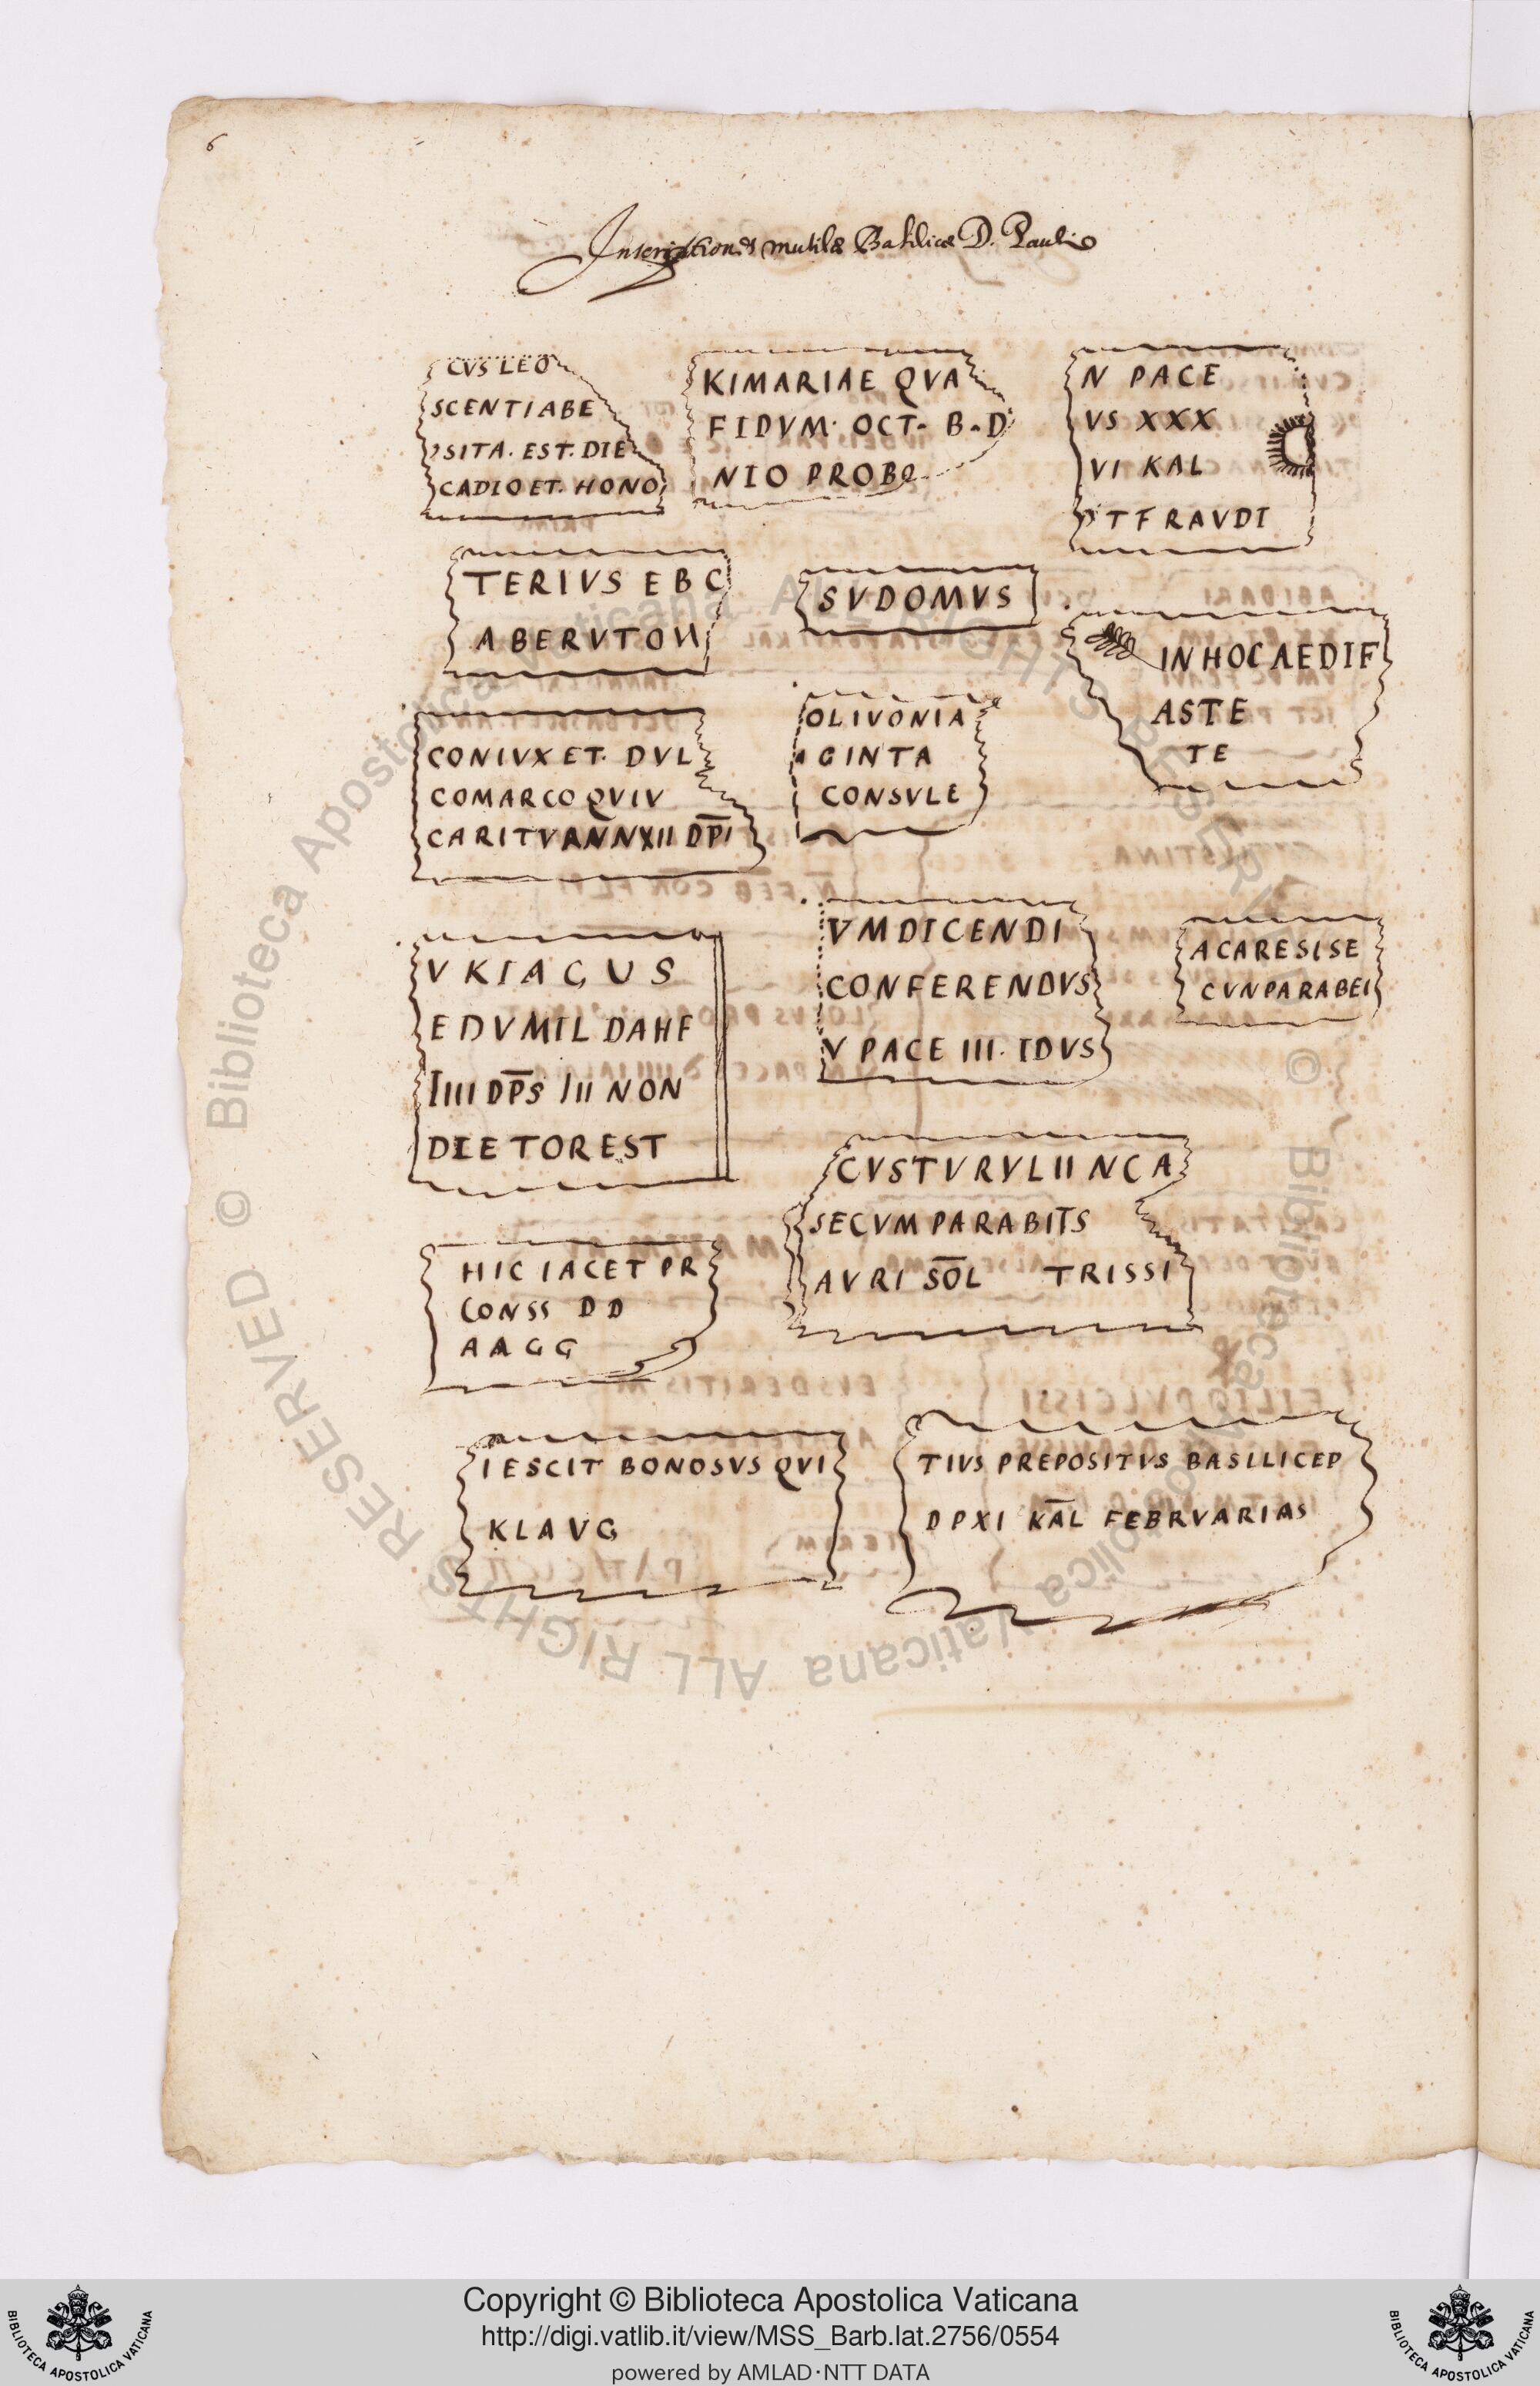 6
Inscriptiones mutilæ Basilicæ D. Pauli
CVS LEO
SCENTIABE
SITA. EST. DIE
CADIO ET. HONO
KIMARIAE QVA
FIDVM. OCT. B. D
NIO PROBO
N PACE
VS XXX
VI KAL
TFRAVDI
TERIVS EBC
ABERVTON
SVDOMVS
IN HOC AEDIF
ASTE
TE
CONIVX ET. DVL
COMARCO QVIV
CARITVANNXII DP̅I
OLIVONIA
GINTA
CONSVLE
VMDICENDI
CONFERENDVS
V PACE III. IDVS
ACARESISE
CVNPARABEI
VKIAGUS
EDVMIL DAHF
IIII DP̅S III NON
DIETOREST
CVSTVRVLII NCA
SECVM PARABITS
AVRI SO̅L TRISSI
HIC IACET PR
CONSS DD
AAGG
IESCIT BONOSVS QVI
KLAVG
TIVS PREPOSITVS BASILICEP
DPXI KA̅L FEBRVARIAS
© Biblioteca Apostolica Vaticana ALL RIGHTS RESERVED © Biblioteca Apostolica Vaticana ALL RIGHTS RESERVED
Copyright © Biblioteca Apostolica Vaticana
http://digi.vatlib.it/view/MSS_Barb.lat.2756/0554
powered by AMLAD·NTT DATA
BIBLIOTECA APOSTOLICA VATICANA
BIBLIOTECA APOSTOLICA VATICANA